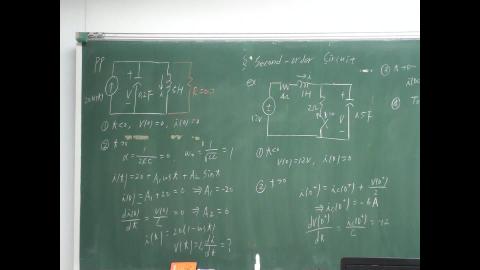 PP
20u(t)
V
0.2F
i
5H
R=0.2
① t<0, V(0)=0, i(0)=0
② t>0
α = 1/2RC = 0, ω₀ = 1/√LC = 1
i(t)=20+A₁cost+A₂ sint
i(0)=A₁+20=0 ⇒A₁=-20
di(0)/dt = V(0)/L =0 ⇒A₂=0
i(t)=20(1-cost)
V(t)=L di/dt = ?
§ Second-order Circuit
ex
4Ω
i
1H
12V
2Ω
V
.5F
① t<0
V(0)=12V, i(0)=0
② t>0
i(0⁺)=ic(0⁺)+ V(0⁺)/2
⇒ic(0⁺)=-6A
dV(0⁺)/dt = ic(0⁺)/C = -12
③
④